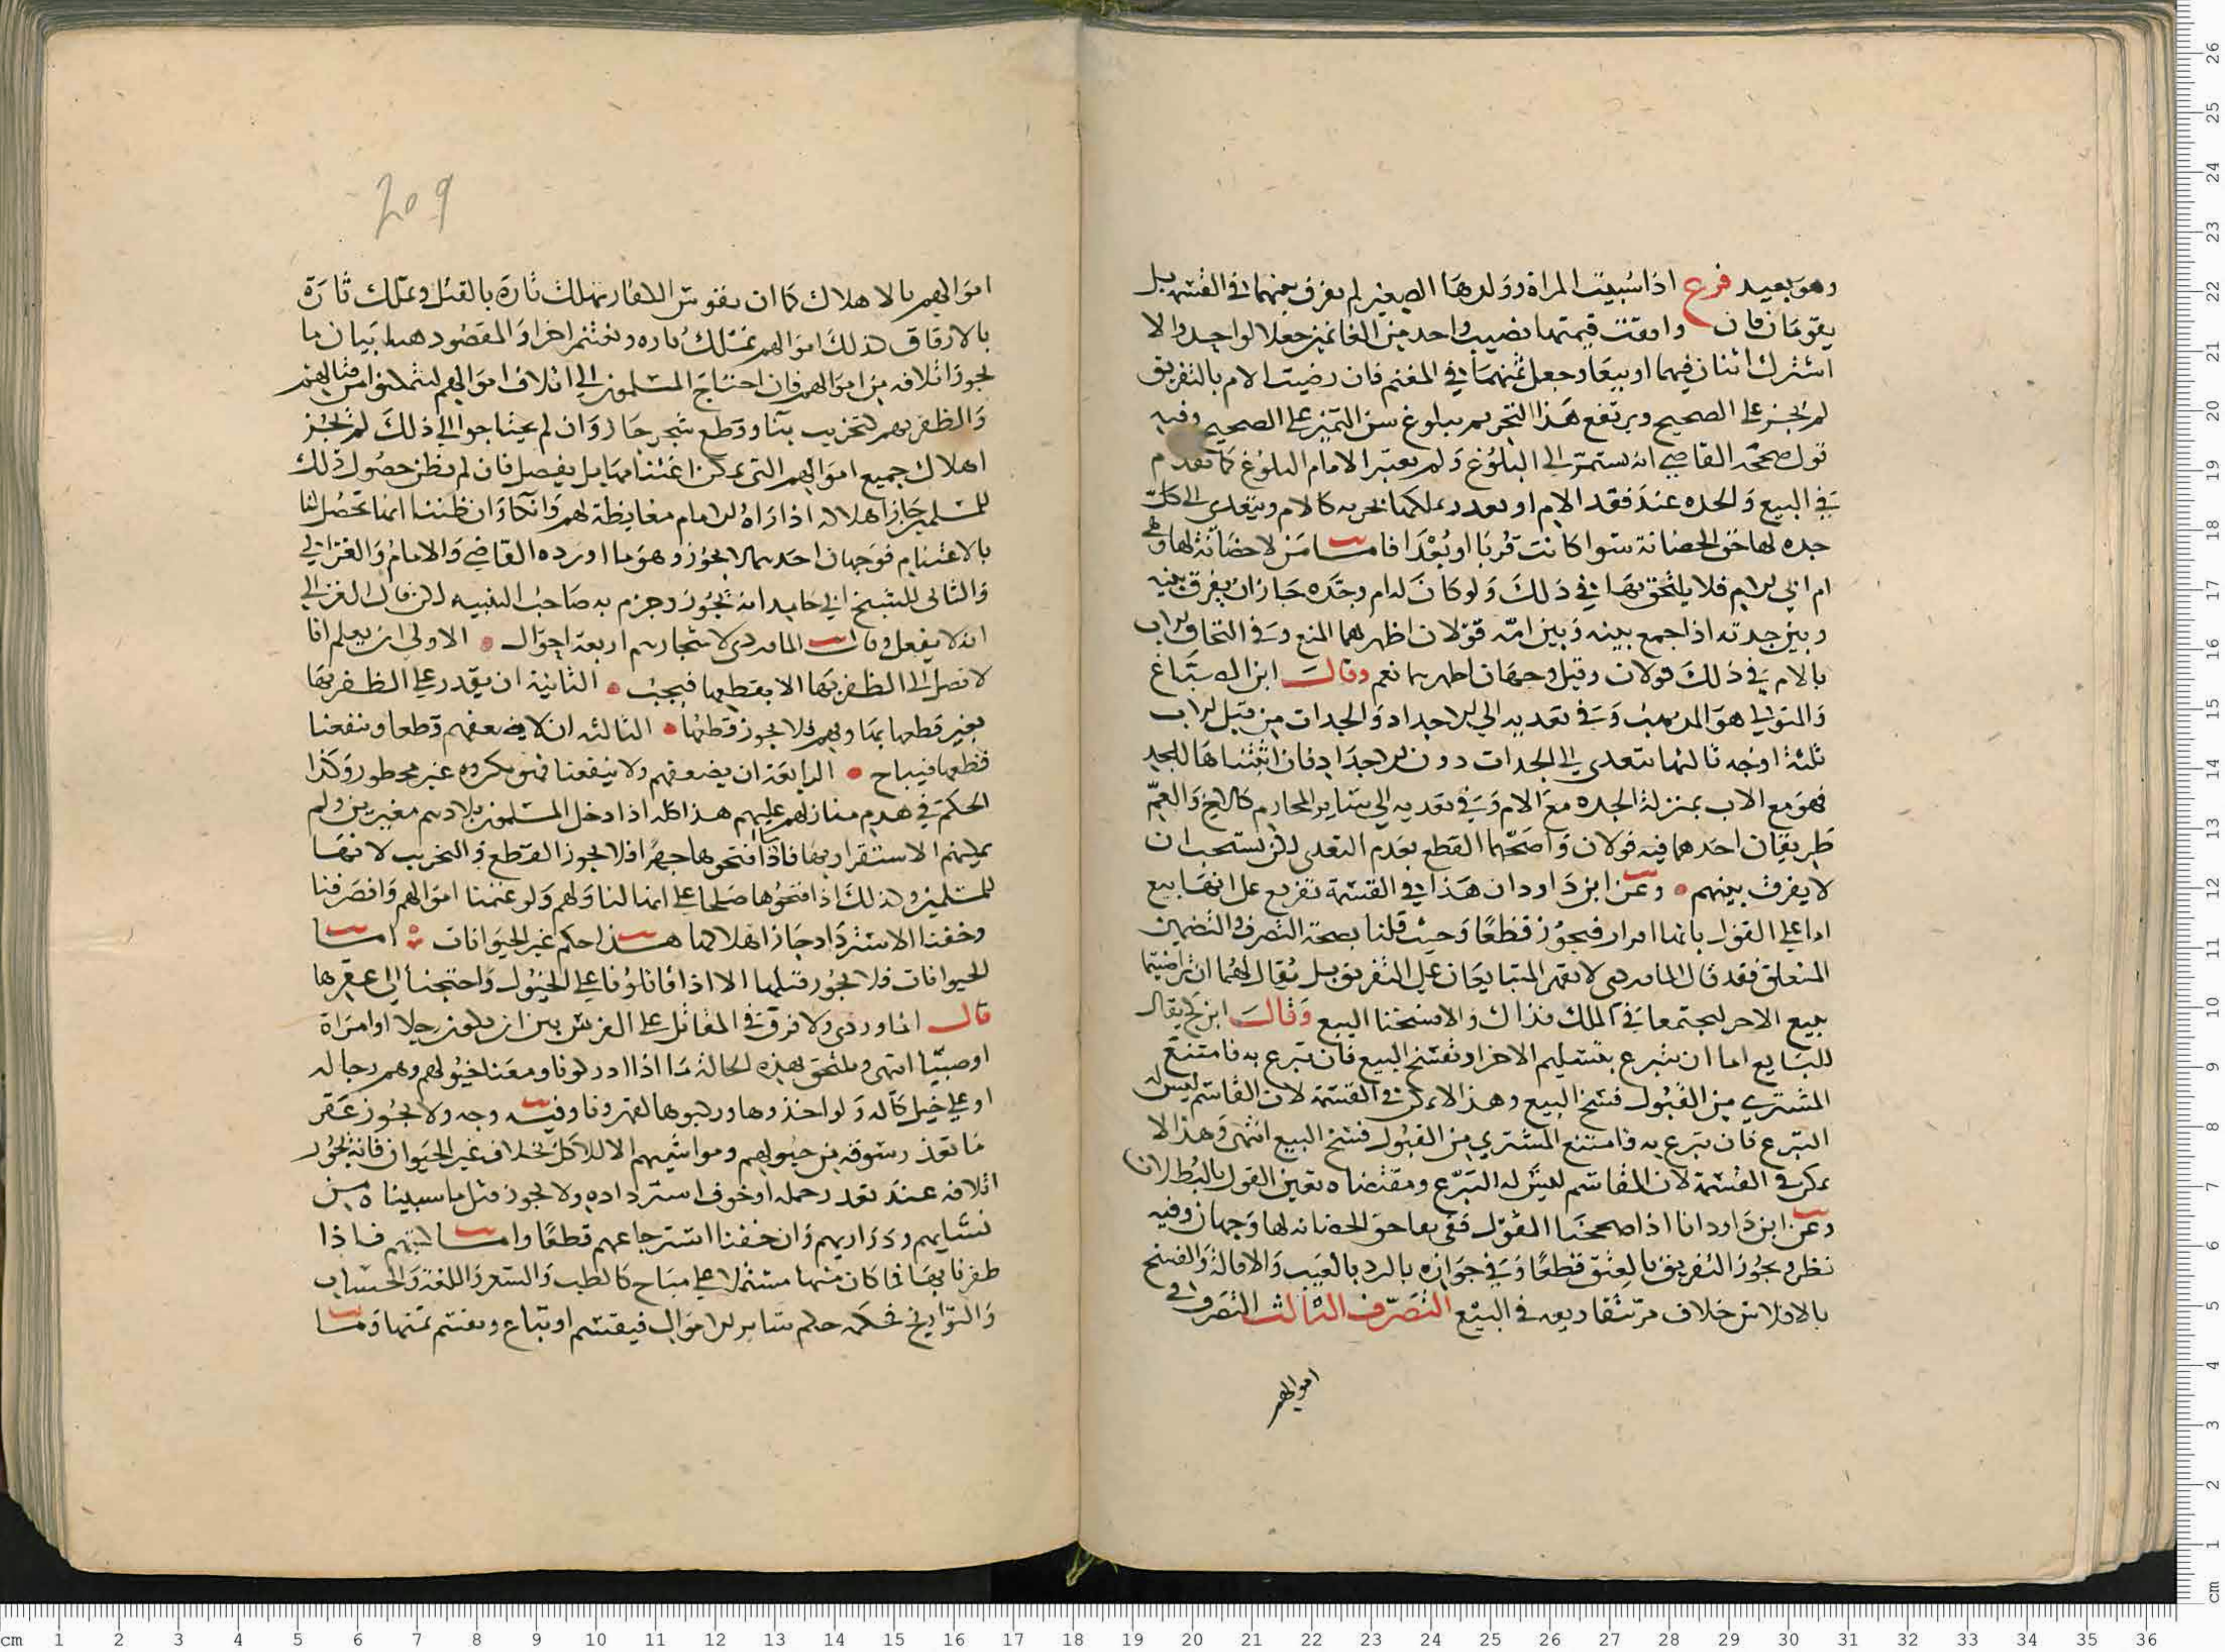 وهو بعيد فرع اذا سُبيت المراة وولدها الصغير لم يفرق بينهما في القسمة بل
يقومان فان وافقت قيمتهما نصيب واحد من الغانمين جعلا لواحد والا
اشترك اثنان فيهما او بيعا وجعل ثمنهما في المغنم فان رضيت الام بالتفريق
لم يجز على الصحيح ويرتفع هذا التحريم ببلوغ سن التمييز على الصحيح وفيه
قول صححه القاضي انه يستمر الى البلوغ ولم يعتبر الامام البلوغ كما تقدم
في البيع والجده عند فقد الام او تعدد كالام ويتعدى الى كل
جده لها حق الحضانة سوا كانت قربا او بُعْدا فاما من لا حضانة لها وهي
ام ابي الام فلا يلتحق بها في ذلك ولو كان له ام وجده جاز ان يفرق بينه
وبين جدته اذا جمع بينه وبين امّه قولان اظهرهما المنع وفي التحاق الاب
بالام في ذلك قولان وقيل وجهان اظهرهما نعم وقال ابن الصباغ
والمتولي هو المذهب وفي تعديه الى الاجداد والجدات من قبل الاب
ثلثة اوجه ثالثها يتعدى الى الجدات دون الاجداد فان اثبتناها للجد
فهو مع الاب بمنزلة الجده مع الام وفي تعديه الى سائر المحارم كالاخ والعمّ
طريقان احدهما فيه قولان واصحّهما القطع بعدم التعدي لكن يستحب ان
لا يفرق بينهم وعن ابن داود ان هذا في القسمة تفريع على انها بيع
اما على القول بانها افراز فيجوز قطعًا وحيث قلنا بصحة التصرف
المتعلق فقد قال الماوردي لا يقر المتبايعان على التفريق بل يقال لهما ان تراضيتما
ببيع الاخر ليجتمعا في الملك فذاك والا فسخنا البيع وقال ابن كج يقال
للبايع اما ان تتبرع بتسليم الاخر او نفسخ البيع فان تبرع به فامتنع
المشتري من القبول فسخ البيع وهذا لا يمكن في القسمة لان القاسم ليس له
التبرع فان تبرع به فامتنع المشتري من القبول فسخ البيع انتهى وهذا لا
يمكن في القسمة لان القاسم ليس له التبرّع ومقتضاه تعين القول بالبطلان
وعن ابن داود انا اذا صححنا القول ففي بقا حق الحضانه لها وجهان وفيه
نظر ويجوز التفريق بالعتق قطعًا وفي جوازه بالرد بالعيب والاقالة والفسخ
بالافلاس خلاف مرّ بتفاريعه في البيع التصرّف الثالث التصرف في
اموالهم
209
اموالهم بالاهلاك كما ان نفوس الكفار تهلك تارة بالقتل وتملك تارة
بالارقاق كذلك اموالهم تهلك تاره وتغتنم اخرا والمقصود هنا بيان ما
يجوز اتلافه من اموالهم فان احتاج المسلمون الى اتلاف اموالهم ليتمكنوا من قتالهم
والظفر بهم كتخريب بنا وقطع شجر جاز وان لم يحتاجوا الى ذلك لم يجز
اهلاك جميع اموالهم التي يمكن اغتنامها بل يفصل فان لم يظن حصول ذلك
للمسلمين جاز اهلاكه اذا راه الامام مغايظة لهم وانكاء وان ظننا انها تحصُل لنا
بالاغتنام فوجهان احدهما لا يجوز وهو ما اورده القاضي والامام والغزالي
والثاني للشيخ ابي حامد انه يجوز وجزم به صاحب التنبيه لكن قال الغزالي
انه لا يفعل وقال الماوردي لاشجارهم اربعة احوال الاولى ان يعلم انا
لا نصل الى الظفر بها الا بقطعها فيجب الثانية ان يقدر على الظفر بها
بغير قطعها بها وبهم فلا يجوز قطعها الثالثه ان لا يضعفهم قطعها وينفعنا
قطعها فيباح الرابعة ان يضعفهم ولا ينفعنا فهو مكروه غير محظور وكذا
الحكم في هدم منازلهم عليهم هذا كله اذا دخل المسلمون بلادهم مغيرين ولم
يمكنهم الاستقرار بها فاما اذا فتحوها جهرًا فلا يجوز القطع والتخريب لانها
للمسلمين وكذلك اذا فتحوها صلحا على انها لنا ولهم ولو غنمنا اموالهم وانصرفنا
وخفنا الاسترداد جاز اهلاكها هذا حكم غير الحيوانات اما
الحيوانات فلا يجوز قتلها الا اذا قاتلونا على الخيول واحتجنا الى عقرها
قال الماوردي ولا فرق في المقاتل على الفرس بين ان يكون رجلا او امراة
او صبيّا انتهى وملتحق بهذه الحالة ما اذا ادركونا ومعنا خيولهم وهم رجاله
او على خيل كآله ولو اخذوها وركبوها لقهرونا وفيه وجه ولا يجوز عَقر
ما تعذر سوقه من خيولهم ومواشيهم الا للاكل بخلاف غير الحيوان فانه يجوز
اتلافه عند تعذر حمله او خوف استرداده ولا يجوز قتل ما سبيناه من
نسايهم وذراريهم وان خفنا استرجاعهم قطعًا واما كتبهم فاذا
ظفرنا بها فما كان منها مشتملا على مباح كالطب والشعر واللغة والحساب
والتواريخ فحكمه حكم سائر الاموال فيقسم او تباع ويقسم ثمنها وما